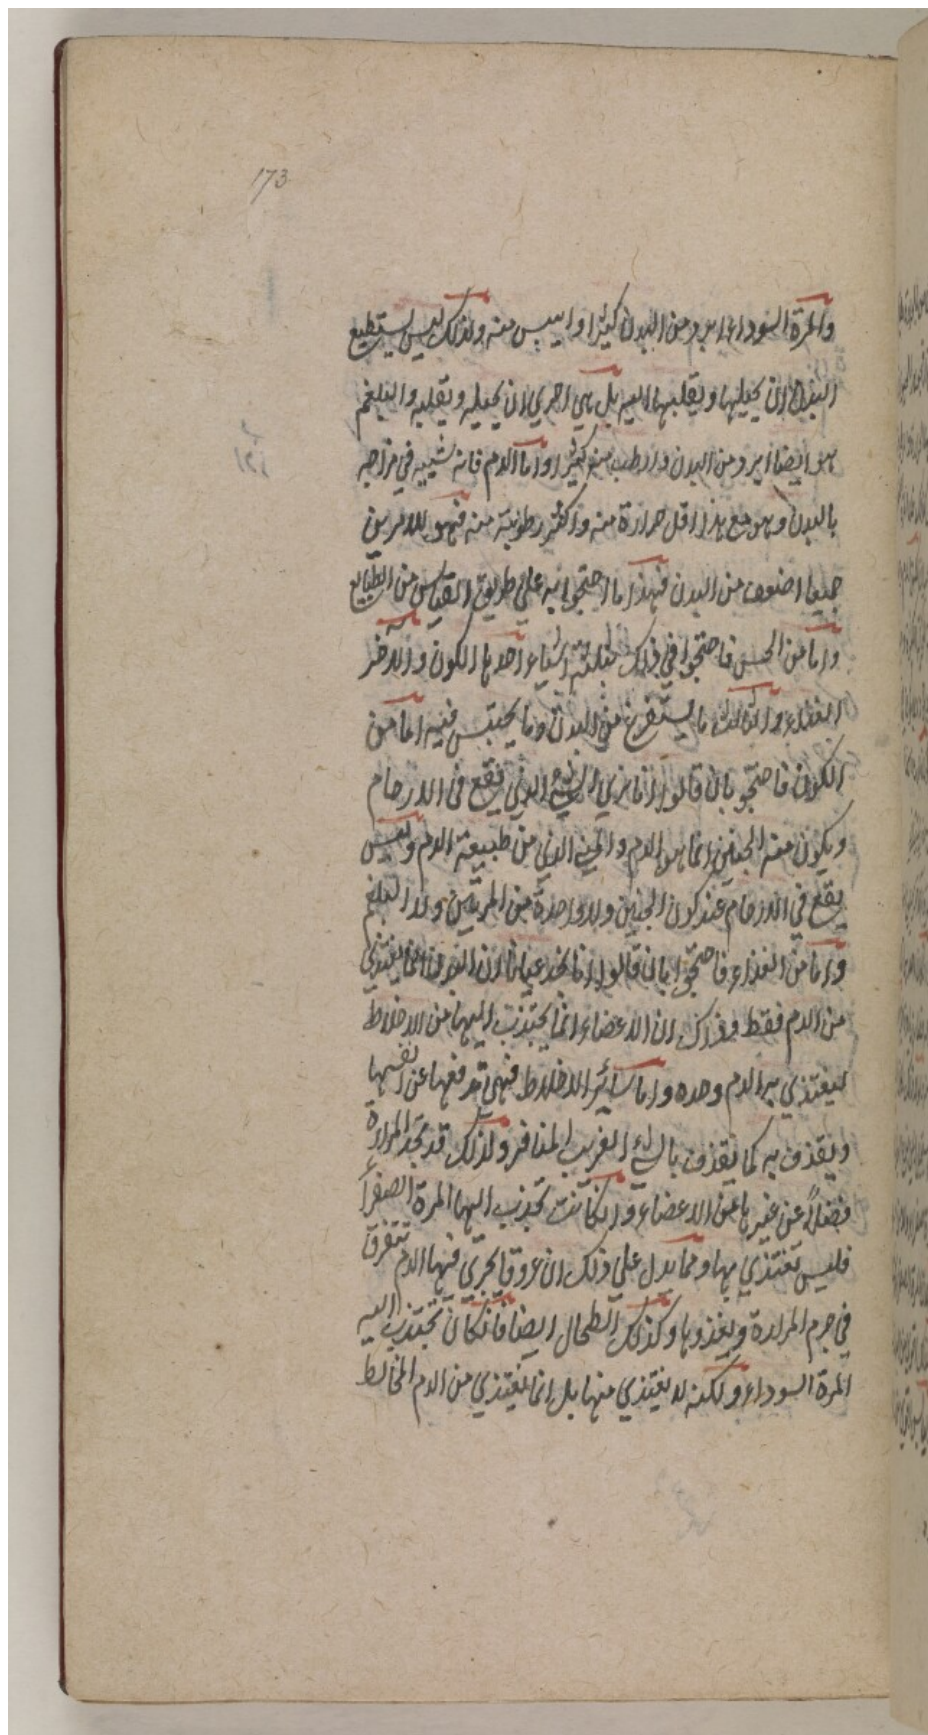 173
والمرة السوداء ابرد من البدن كثيرا وايبس منه ولذلك ليس يستطيع
البدن ان يحيلها ويقلبها اليه بل هي احرى ان يحيله ويقلبه والبلغم
هو ايضا ابرد من البدن وارطب منه كثيرا واما الدم فانه شبيه في مزاجه
بالبدن وهو مع هذا اقل حرارة منه واكثر رطوبة منه فهو للامرين
جميعا اضعف من البدن فهذا ما احتجوا به على طريق القياس من الطبايع
واما من الحس فاحتجوا في ذلك بثلثة اشياء احدها الكون والاخر
الغذاء والثالث ما يستفرغ من البدن وما يحتبس فيه اما من
الكون فاحتجو بان قالوا انا نرى الشيء الذي يقع في الارحام
ويكون منه الجنين انما هو الدم والمني الذي من طبيعة الدم وليس
يقع في الارحام عند كون الجنين ولا واحدة من المرتين ولا البلغم
واما من الغذاء فاحتجوا بان قالوا انا نجد عيانا ان البدن انما يغتذي
من الدم فقط وذلك ان الاعضاء انما يجتذب اليها من الاخلاط
ليغتذي به الدم وحده واما سائر الاخلاط فهي تدفعها عن انفسها
ويقذف به كما يقذف بالشيء الغريب المنافر ولذلك قد تجد المرارة
فضلاً عن غيرها من الاعضاء وان كانت تجذب اليها المرة الصفرا
فليس تغتذي بها ومما يدل على ذلك ان عروقا يجري فيها الدم تتفرق
في جرم المرارة ويغذوها وكذلك الطحال ايضا فان كان تجتذب اليه
المرة السوداء ولكنه لا يغتذي منها بل انما يغتذي من الدم المخالط